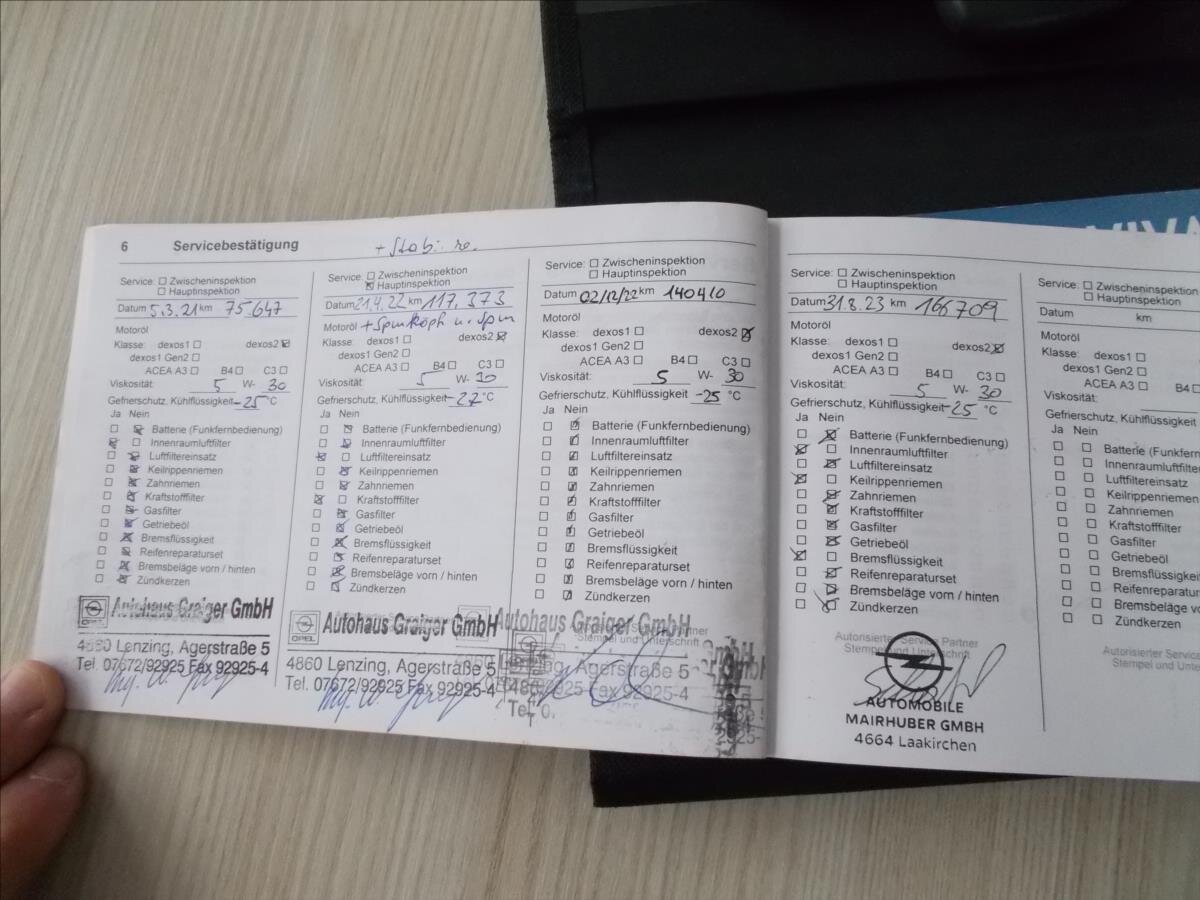 6 Servicebestätigung
+ Stab. re.
Service: ☐ Zwischeninspektion
☐ Hauptinspektion
Datum 5.3.21 km 75.647
Motoröl
Klasse: dexos1 ☐ dexos2 ☒
dexos1 Gen2 ☐
ACEA A3 ☐ B4 ☐ C3 ☐
Viskosität: 5 W- 30
Gefrierschutz, Kühlflüssigkeit -25 °C
Ja Nein
☐ ☒ Batterie (Funkfernbedienung)
☒ ☐ Innenraumluftfilter
☐ ☒ Luftfiltereinsatz
☐ ☒ Keilrippenriemen
☐ ☒ Zahnriemen
☐ ☒ Kraftstofffilter
☐ ☒ Gasfilter
☐ ☒ Getriebeöl
☐ ☒ Bremsflüssigkeit
☐ ☒ Reifenreparaturset
☐ ☒ Bremsbeläge vorn / hinten
☐ ☒ Zündkerzen
Autohaus Graiger GmbH
OPEL
4860 Lenzing, Agerstraße 5
Tel. 07672/92925 Fax 92925-4
Service: ☐ Zwischeninspektion
☒ Hauptinspektion
Datum 21.4.22 km 117.373
Motoröl
Klasse: dexos1 ☐ dexos2 ☒
dexos1 Gen2 ☐
ACEA A3 ☐ B4 ☐ C3 ☐
Viskosität: 5 W- 30
Gefrierschutz, Kühlflüssigkeit -27 °C
Ja Nein
☐ ☒ Batterie (Funkfernbedienung)
☐ ☒ Innenraumluftfilter
☒ ☐ Luftfiltereinsatz
☐ ☒ Keilrippenriemen
☐ ☒ Zahnriemen
☒ ☐ Kraftstofffilter
☐ ☒ Gasfilter
☐ ☒ Getriebeöl
☐ ☒ Bremsflüssigkeit
☐ ☒ Reifenreparaturset
☐ ☒ Bremsbeläge vorn / hinten
☐ ☒ Zündkerzen
Autohaus Graiger GmbH
OPEL
4860 Lenzing, Agerstraße 5
Tel. 07672/92925 Fax 92925-4
Service: ☐ Zwischeninspektion
☐ Hauptinspektion
Datum 02/12/22 km 140410
Motoröl
Klasse: dexos1 ☐ dexos2 ☒
dexos1 Gen2 ☐
ACEA A3 ☐ B4 ☐ C3 ☐
Viskosität: 5 W- 30
Gefrierschutz, Kühlflüssigkeit -25 °C
Ja Nein
☐ ☒ Batterie (Funkfernbedienung)
☐ ☒ Innenraumluftfilter
☐ ☒ Luftfiltereinsatz
☐ ☒ Keilrippenriemen
☐ ☒ Zahnriemen
☐ ☒ Kraftstofffilter
☐ ☒ Gasfilter
☐ ☒ Getriebeöl
☐ ☒ Bremsflüssigkeit
☐ ☒ Reifenreparaturset
☐ ☒ Bremsbeläge vorn / hinten
☐ ☒ Zündkerzen
Autohaus Graiger GmbH
Stempel und Unterschrift
Lenzing, Agerstraße 5
Fax 92925-4
Service: ☐ Zwischeninspektion
☐ Hauptinspektion
Datum 31.8.23 km 166709
Motoröl
Klasse: dexos1 ☐ dexos2 ☒
dexos1 Gen2 ☐
ACEA A3 ☐ B4 ☐ C3 ☐
Viskosität: 5 W- 30
Gefrierschutz, Kühlflüssigkeit -25 °C
Ja Nein
☐ ☒ Batterie (Funkfernbedienung)
☒ ☐ Innenraumluftfilter
☐ ☒ Luftfiltereinsatz
☒ ☐ Keilrippenriemen
☐ ☒ Zahnriemen
☐ ☒ Kraftstofffilter
☐ ☒ Gasfilter
☐ ☒ Getriebeöl
☒ ☐ Bremsflüssigkeit
☐ ☒ Reifenreparaturset
☐ ☒ Bremsbeläge vorn / hinten
☐ ☒ Zündkerzen
Autorisierter Service Partner
Stempel und Unterschrift
AUTOMOBILE
MAIRHUBER GMBH
4664 Laakirchen
Service: ☐ Zwischeninspektion
☐ Hauptinspektion
Datum km
Motoröl
Klasse: dexos1 ☐
dexos1 Gen2 ☐
ACEA A3 ☐ B4
Viskosität:
Gefrierschutz, Kühlflüssigkeit
Ja Nein
☐ ☐ Batterie (Funkfern
☐ ☐ Innenraumluftfilter
☐ ☐ Luftfiltereinsatz
☐ ☐ Keilrippenriemen
☐ ☐ Zahnriemen
☐ ☐ Kraftstofffilter
☐ ☐ Gasfilter
☐ ☐ Getriebeöl
☐ ☐ Bremsflüssigkei
☐ ☐ Reifenreparatur
☐ ☐ Bremsbeläge vo
☐ ☐ Zündkerzen
Autorisierter Service
Stempel und Unte
VIVA